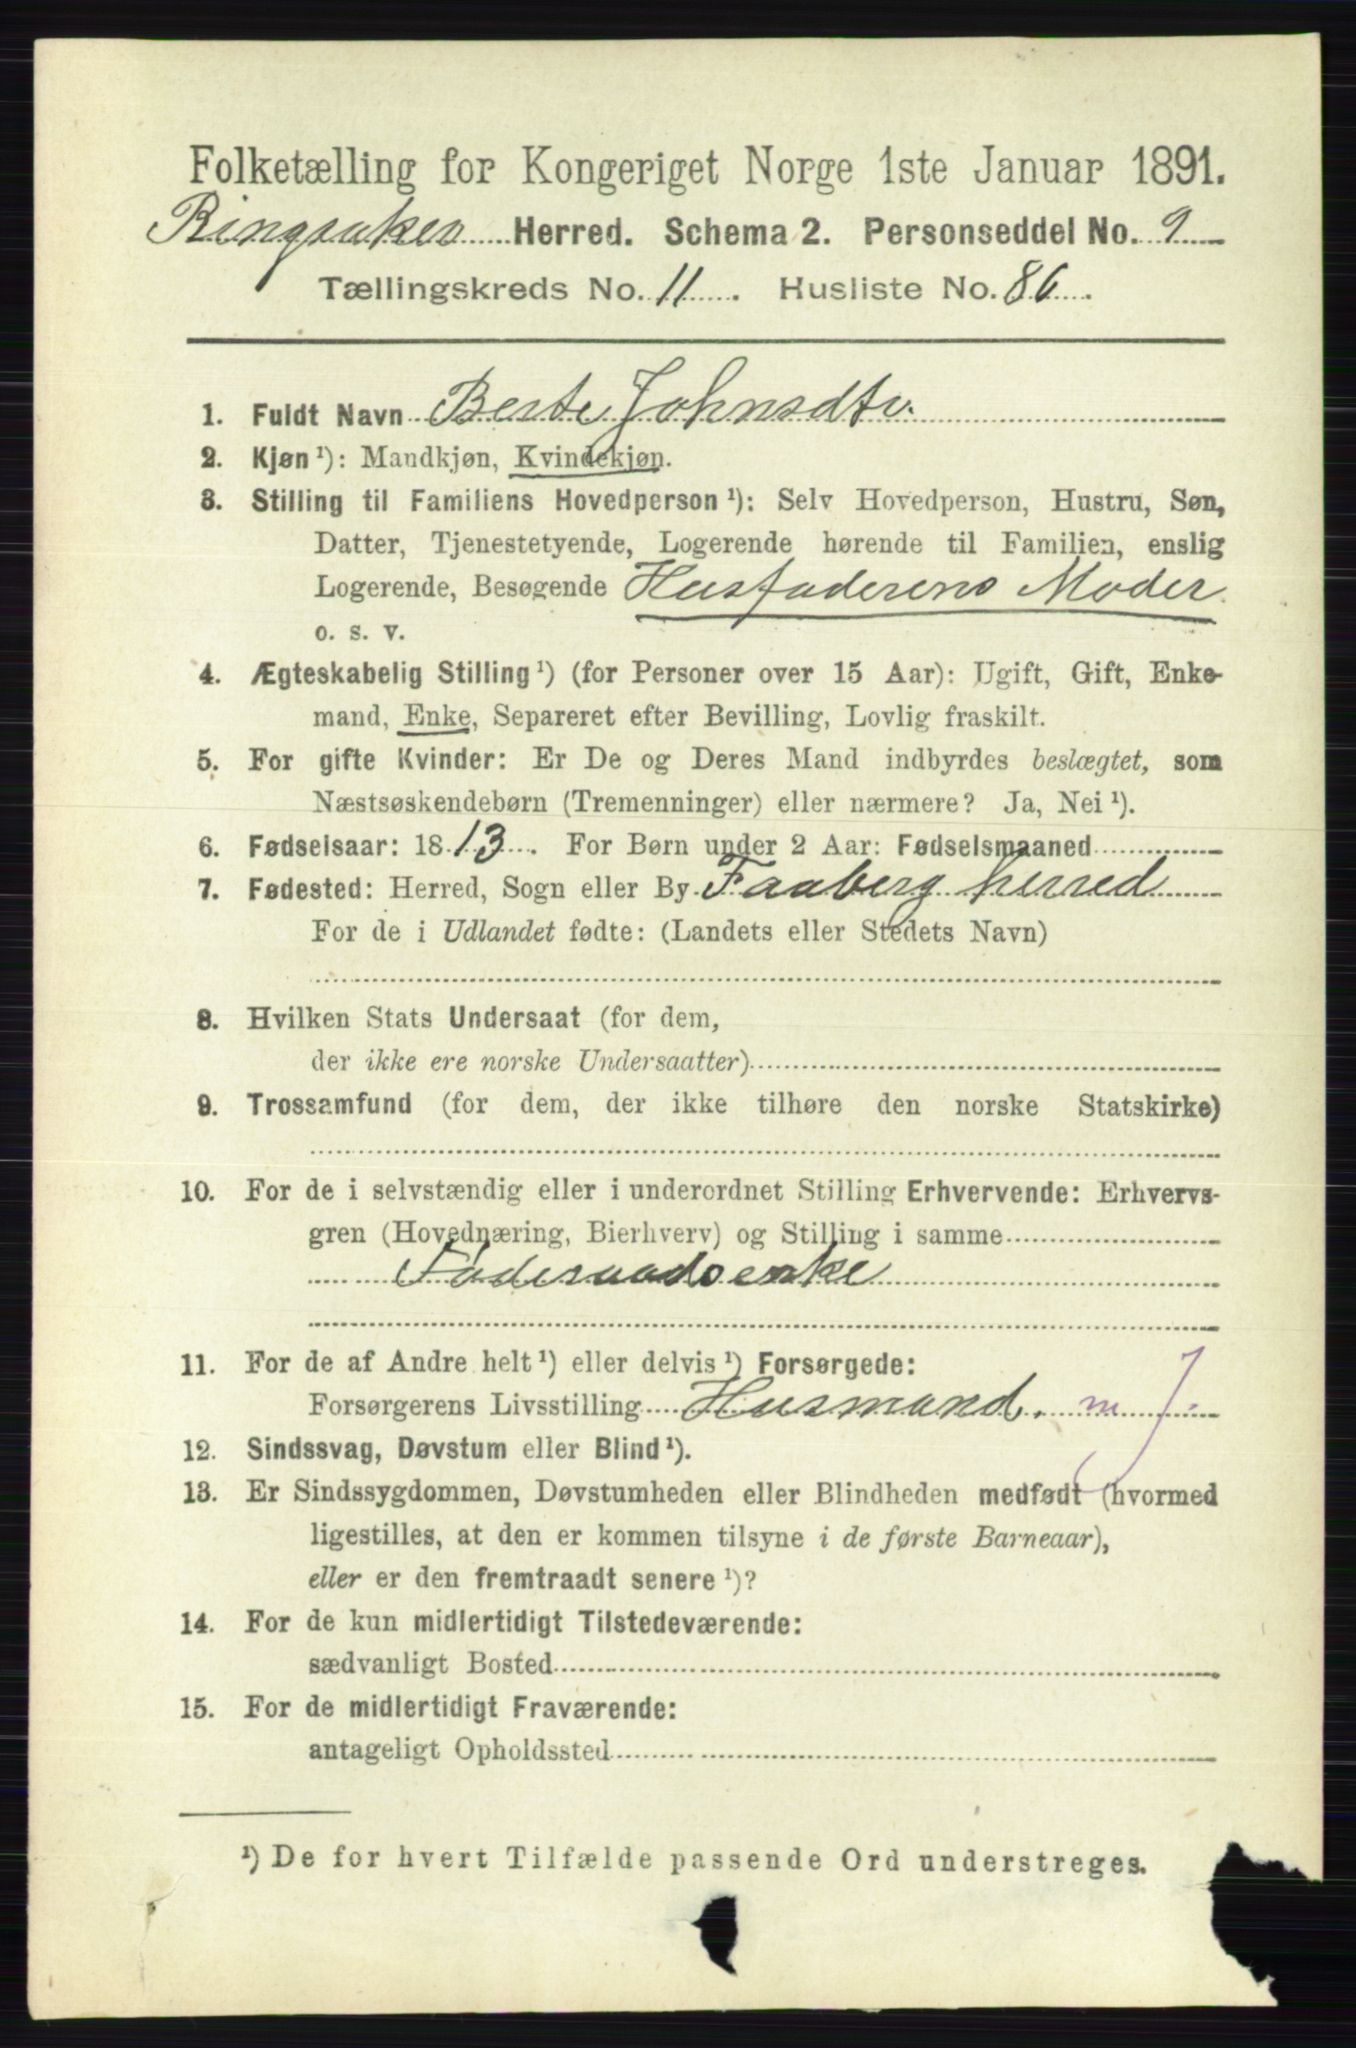 Folketælling for Kongeriget Norge 1ste Januar 1891.
Ringsaker Herred. Schema 2. Personseddel No. 9
Tællingskreds No. 11. Husliste No. 86.
1. Fuldt Navn Berte Johnsdtr.
2. Kjøn¹): Mandkjøn, Kvindekjøn.
3. Stilling til Familiens Hovedperson¹): Selv Hovedperson, Hustru, Søn,
Datter, Tjenestetyende, Logerende hørende til Familien, enslig
Logerende, Besøgende Husfaderens Moder.
o. s. v.
4. Ægteskabelig Stilling¹) (for Personer over 15 Aar): Ugift, Gift, Enke-
mand, Enke, Separeret efter Bevilling, Lovlig fraskilt.
5. For gifte Kvinder: Er De og Deres Mand indbyrdes beslægtet, som
Næstsøskendebørn (Tremenninger) eller nærmere? Ja, Nei¹).
6. Fødselsaar: 1813. For Børn under 2 Aar: Fødselsmaaned
7. Fødested: Herred, Sogn eller By Faaberg herred
For de i Udlandet fødte: (Landets eller Stedets Navn)
8. Hvilken Stats Undersaat (for dem,
der ikke ere norske Undersaatter)
9. Trossamfund (for dem, der ikke tilhøre den norske Statskirke)
10. For de i selvstændig eller i underordnet Stilling Erhvervende: Erhvervs-
gren (Hovednæring, Bierhverv) og Stilling i samme
Føderaadsenke
11. For de af Andre helt¹) eller delvis¹) Forsørgede:
Forsørgerens Livsstilling Husmand. m J.
12. Sindssvag, Døvstum eller Blind¹).
13. Er Sindssygdommen, Døvstumheden eller Blindheden medfødt (hvormed
ligestilles, at den er kommen tilsyne i de første Barneaar),
eller er den fremtraadt senere¹)?
14. For de kun midlertidigt Tilstedeværende:
sædvanligt Bosted
15. For de midlertidigt Fraværende:
antageligt Opholdssted
¹) De for hvert Tilfælde passende Ord understreges.